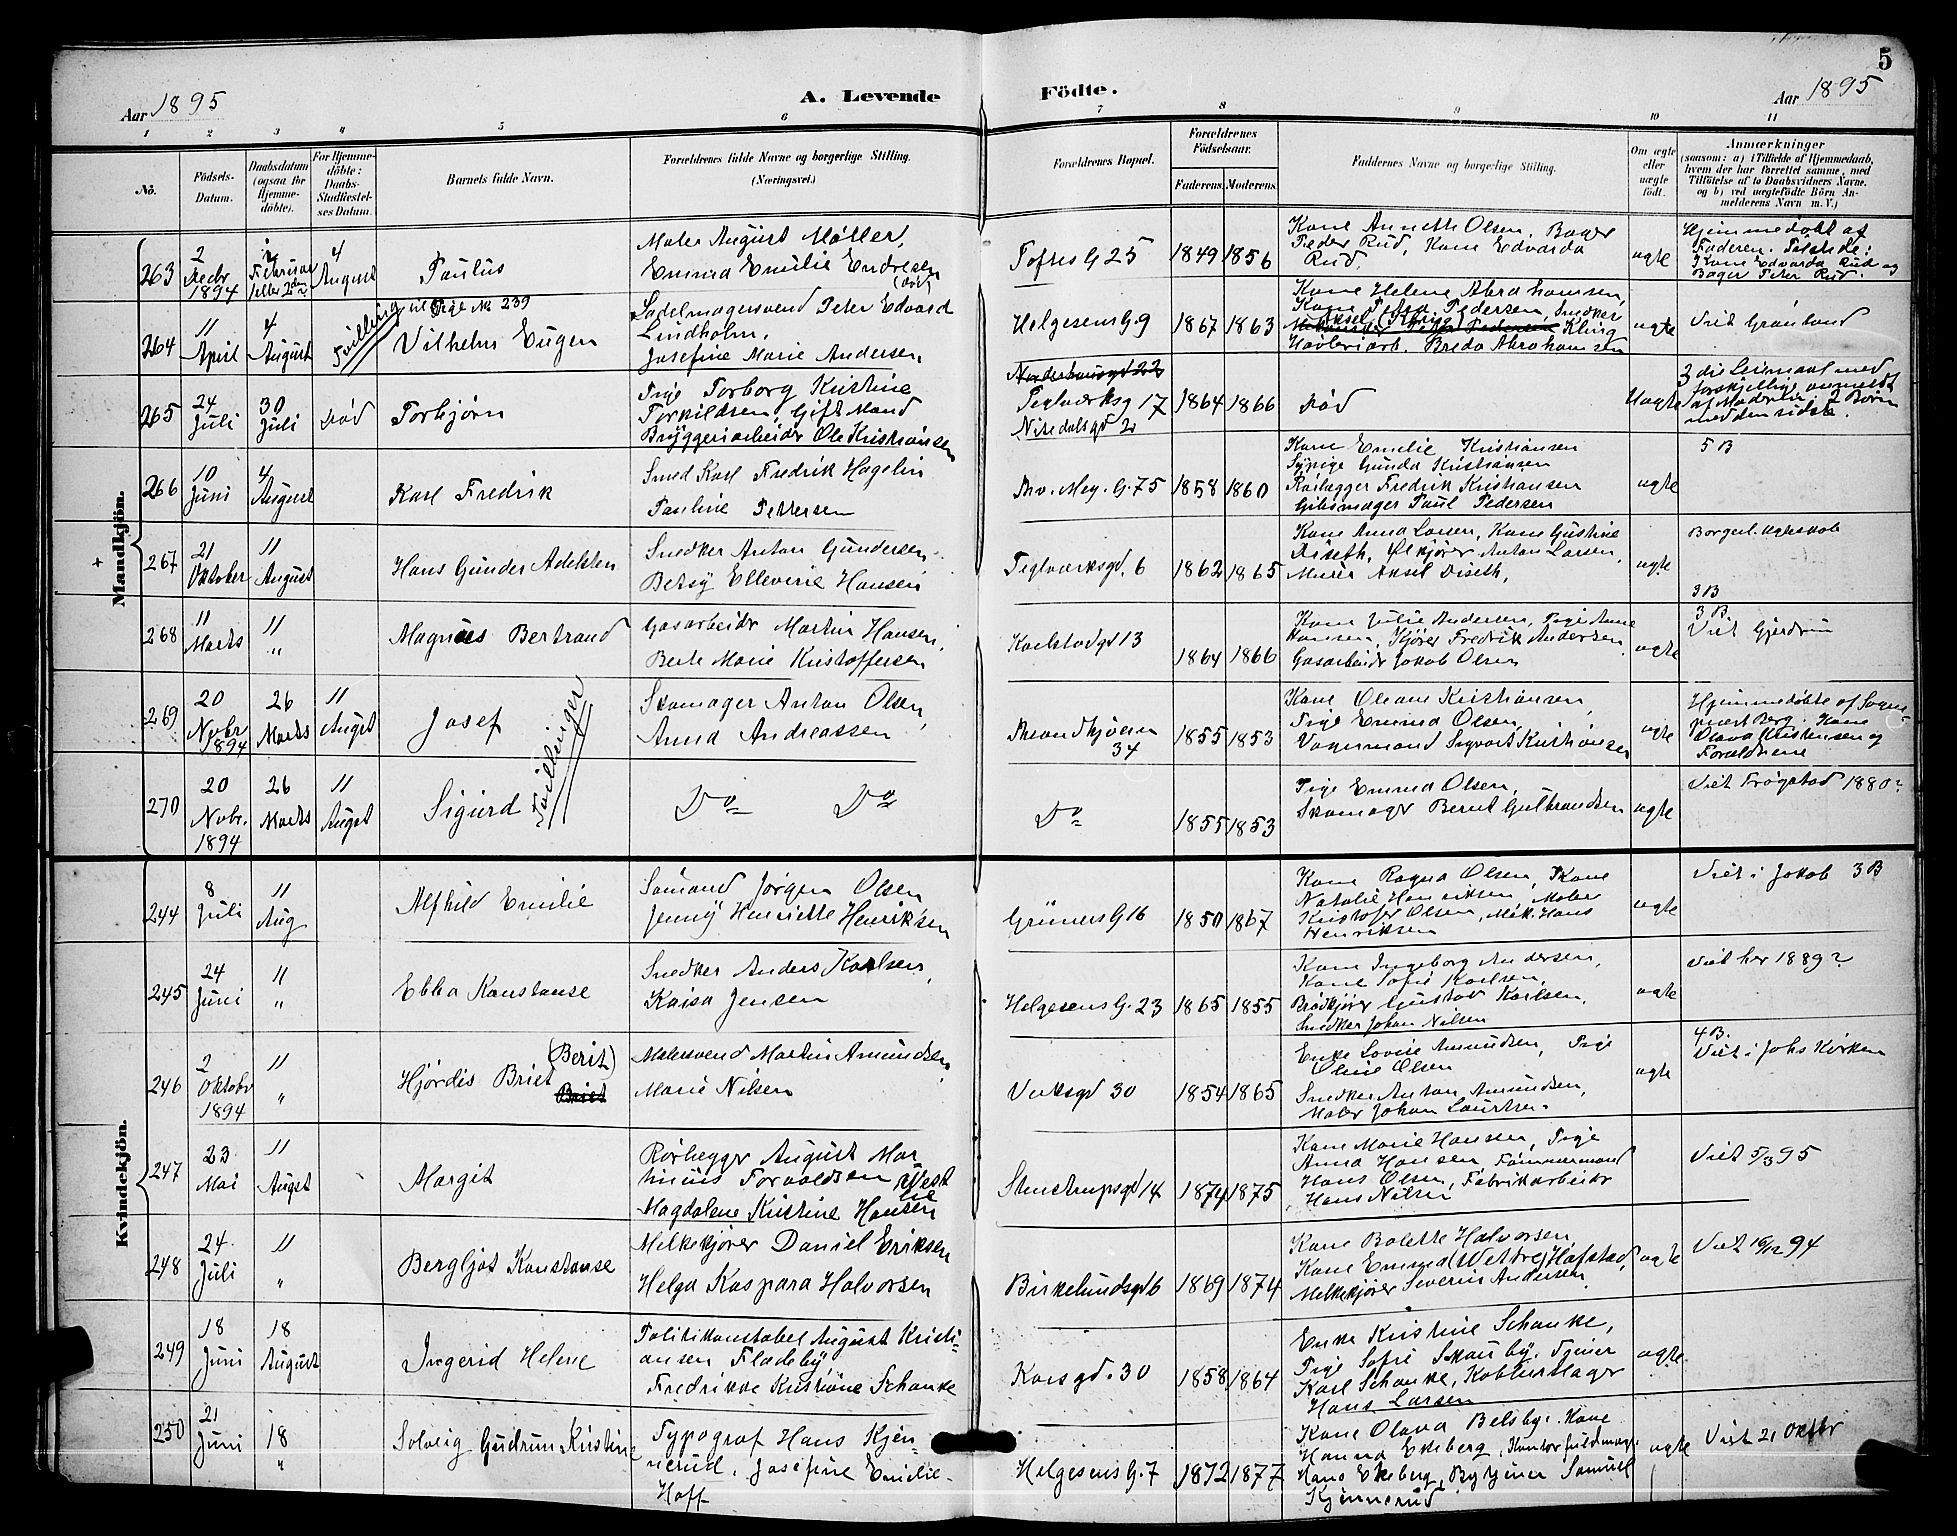 5
Aar 1895
A. Levende
Födte.
Aar 1895
1 2 3 4 5 6 7 8 9 10 11
No.
Födsels-
Datum.
Daabsdatum
(ogsaa for
Hjemme-
döbte).
For Hjemme-
döbte:
Daabs-
Stadfæstel-
ses Datum.
Barnets fulde Navn.
Forældrenes fulde Navne og borgerlige Stilling.
(Næringsvei.)
Forældrenes Bopæl.
Forældrenes
Födselsaar.
Faderens. Moderens.
Faddernes Navne og borgerlige Stilling.
Om ægte
eller
uægte
födt.
Anmærkninger
(saasom: a) i Tilfælde af Hjemmedaab,
hvem der har forrettet samme, med
Tilföielse af to Daabsvidners Navne,
og b) ved uægtefödte Börn An-
melderens Navn m. V.)
+
Mandkjön.
263
2
1894
4
August
Paulus
Maler August Møller,
Emma Emilie Endresen
Toftes G 25
1849 1856
Kone Annette Olsen, Bager
Peder Rud, Kone Edvarda
Rud.
ægte
Hjemmedøbt af
Faderen. Tilstede:
Kone Edvarda Rud og
Bager Peter Rud.
264
11
April
4
August
Tvilling til Pige No 239
Vilhelm Eugen
Sadelmagersvend Peter Edvard
Lindholm,
Josefine Marie Andersen
Helgesens G. 9
1867 1863
Kone Helene Abrahamsen,
Pedersen, Snedker
Kling
Høvleriarb. Breda Abrahamsen
ægte
Viet Grønland
265
24
Juli
30
Juli
Død
Torbjørn
Pige Torborg Kristine
Torkildsen, Gift Mand
Bryggeriarbeider Ole Kristiansen
Teglverksg 17
Nitedalsgd 2
1864 1866
Død
Uægte
3die Leiermaal med
forskjellige anmeldt
af Moderen. 2 Børn
med den sidste.
266
10
Juni
4
August
Karl Fredrik
Smed Karl Fredrik Hagelin
Pauline Pettersen
Thv. Mey. G. 75
1858 1860
Kone Emilie Kristiansen
Sypige Gunda Kristiansen
Rørlægger Fredrik Kristiansen
Gibsmager Paul Pedersen
ægte
5 B
267
21
Oktober
11
August
Hans Gunder Adelsten
Snedker Anton Gundersen
Betsy Elleverie Hansen
Teglværksgd. 6
1862 1865
Kone Anna Larsen, Kone Gustine
Diseth, Ølkjører Anton Larsen,
Murer Aksel Diseth,
ægte
Borgerl. Ægteskab
3 B
268
11
Marts
11
"
Magnus Bertrand
Gasarbeider Martin Hansen,
Berte Marie Kristoffersen
Karlstadgd 13
1864 1866
Kone Julie Andersen, Pige Anne
Hansen, Kjører Fredrik Andersen
Gasarbeider Jakob Olsen
ægte
3 B.
Viet Gjerdrum
269
20
Novbr
1894
26
Marts
11
Augst
Josef
Tvillinger
Skomager Anton Olsen,
Anna Andreassen
Throndhjemsv
34
1855 1853
Kone Oleane Kristiansen,
Pige Emma Olsen,
Vognmand Sigvart Kristiansen
ægte
Hjemmedøbte af Sogne-
præst Berg. Kone
Olava Kristensen og
Forældrene
270
20
Novbr.
1894
26
Marts
11
Augst
Sigurd
Do Do
Do
1855 1853
Pige Emma Olsen,
Skomager Bernt Gulbrandsen
ægte
Viet Trøgstad 1880?
Kvindekjön.
244
8
Juli
11
Aug
Alfhild Emilie
Sømand Jørgen Olsen
Jenny Henriette Henriksen
Grüners G 16
1850 1867
Kone Ragna Olsen, Kone
Natalie Henriksen, Maler
Kristofer Olsen, Mek. Hans
Henriksen
ægte
Viet i Jakob 3 B
245
24
Juni
11
"
Ebba Konstanse
Snedker Anders Karlsen,
Kaisa Jensen
Helgesens G. 23
1865 1855
Kone Ingeborg Andersen,
Kone Sofie Karlsen,
Brødkjører Gustav Karlsen,
Snedker Johan Nilsen
ægte
Viet her 1889?
246
2
Oktobr
1894
11
"
Hjørdis Briet (Berit)
Malersvend Martin Amundsen,
Marie Nilsen
Verksgd 30
1854 1865
Enke Lovise Amundsen, Pige
Oline Olsen
Snedker Anton Amundsen,
Maler Johan Lauritsen
ægte
4 B.
Viet i Johs Kirken
247
23
Mai
11
Augst
Margit
Rørlægger August Mar-
tinius Torvaldsen Vestlie
Magdalene Kristine Hansen
Stenstrupsgd 14
1874 1875
Kone Marie Hansen, Pige
Anna Hansen, Tømmermand
Hans Olsen, Fabrikarbeider
Hans Nilsen
Viet 5/3 95
248
24
Juli
11
"
Bergljot Konstanse
Melkekjører Daniel Eriksen
Helga Kaspara Halvorsen
Birkelundsgd 6
1869 1874
Kone Bolette Halvorsen,
Kone Emma (Wettre) Hafstad,
Melkekjører Severin Andersen
ægte
Viet 16/12 94
249
18
Juni
18
August
Ingerid Helene
Politikonstabel August Kristi-
ansen Fladeby
Fredrikke Kristiane Schanke
Korsgd. 30
1858 1864
Enke Kristine Schanke,
Pige Sofie Skauby, Tjener
Karl Schanke, Kobberslager
Hans Larsen
ægte
250
21
Juni
18
"
Solveig Gudrun Kristine
Typograf Hans Kjen-
nerud, Josefine Emilie
Hoff
Helgesens G. 7
1872 1877
Kone Olava Belsby, Kone
Hanna Ekeberg, Kontorfuldmæg.
Hans Ekeberg, Bytjener Samuel
Kjennerud
ægte
Viet 21 Oktbr